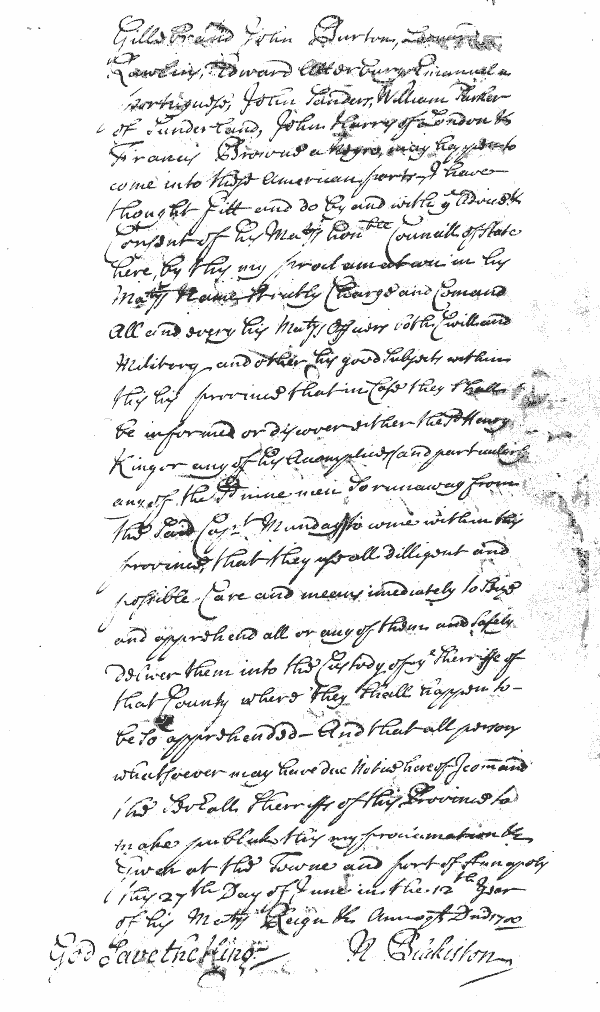 Gillebrand John Burton,
Rawlins, Edward Atterbury Emanuel a
Portuguese, John Sanders, William Parker
of Sunderland, John Harry of London &
Francis Browne a Negro, may happen to
come into these American parts, I have
thought fitt and do by and with ye Advice &
Consent of his Matys honble Councill of State
here, by this my proclamation in his
Matys Name strictly Charge and Comand
All and every his Matys Officers both Civill and
Military and other his good Subjects within
this his province that in Case they shall
be informed or discover either the Sd Henry
King or any of his Accomplices (and particularly
any of the nine men So runaway from
the Said Capt Munday to come within this
province, that they use all dilligent and
possible Care and means imediately to Seize
and apprehend all or any of them and Safely
deliver them into the Custody of ye Sherriffe of
that County where they shall happen to
be So apprehended - And that all person
whatsoever may have due Notice hereof I comand
the Sherriffs of this Province to
make publick this my proclamation
Given at the Towne and port of Annapolis
this 27th Day of June in the 12th Year
of his Matys Reign &c Annoq Dni 1700
God Save the King N Blakiston